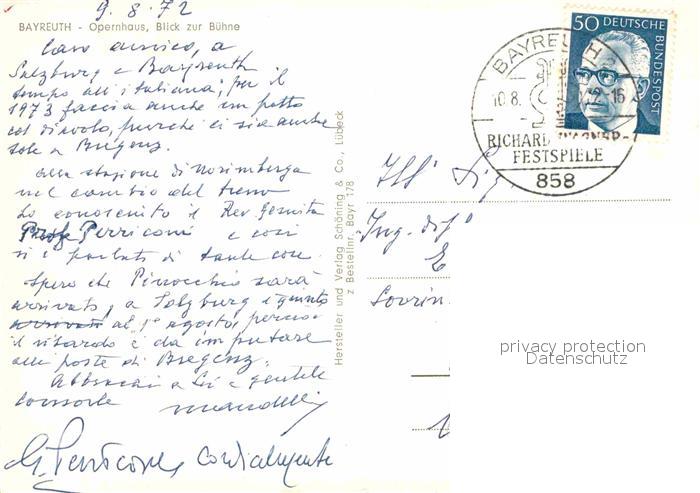 9.8.72
BAYREUTH - Opernhaus, Blick zur Bühne
Caro amico, a
Salzburg e Bayreuth
tempo all'italiana; per il
1973 faccia anche un patto
col diavolo, purché ci sia anche
sole a Bregenz.
Alla stazione di Norimberga
nel cambio del treno
ho conosciuto il Rev. Gesuita
Prof. Perriconi e così
si è parlato di tante cose.
Spero che Pinocchio sarà
arrivato, a Salzburg è giunto
arrivato al 1° agosto, perciò
il ritardo è da imputare
alle poste di Bregenz.
Abbracci a Lei e gentile
consorte
G. Perricone cordialmente
Hersteller und Verlag Schöning & Co., Lübeck
z Bestellnr. Bayr 178
50 DEUTSCHE
BUNDESPOST
BAYREUTH 2
10.8.
RICHARD WAGNER-
FESTSPIELE
858
Ill. Sig.
Ing.
Sovrin
privacy protection
Datenschutz